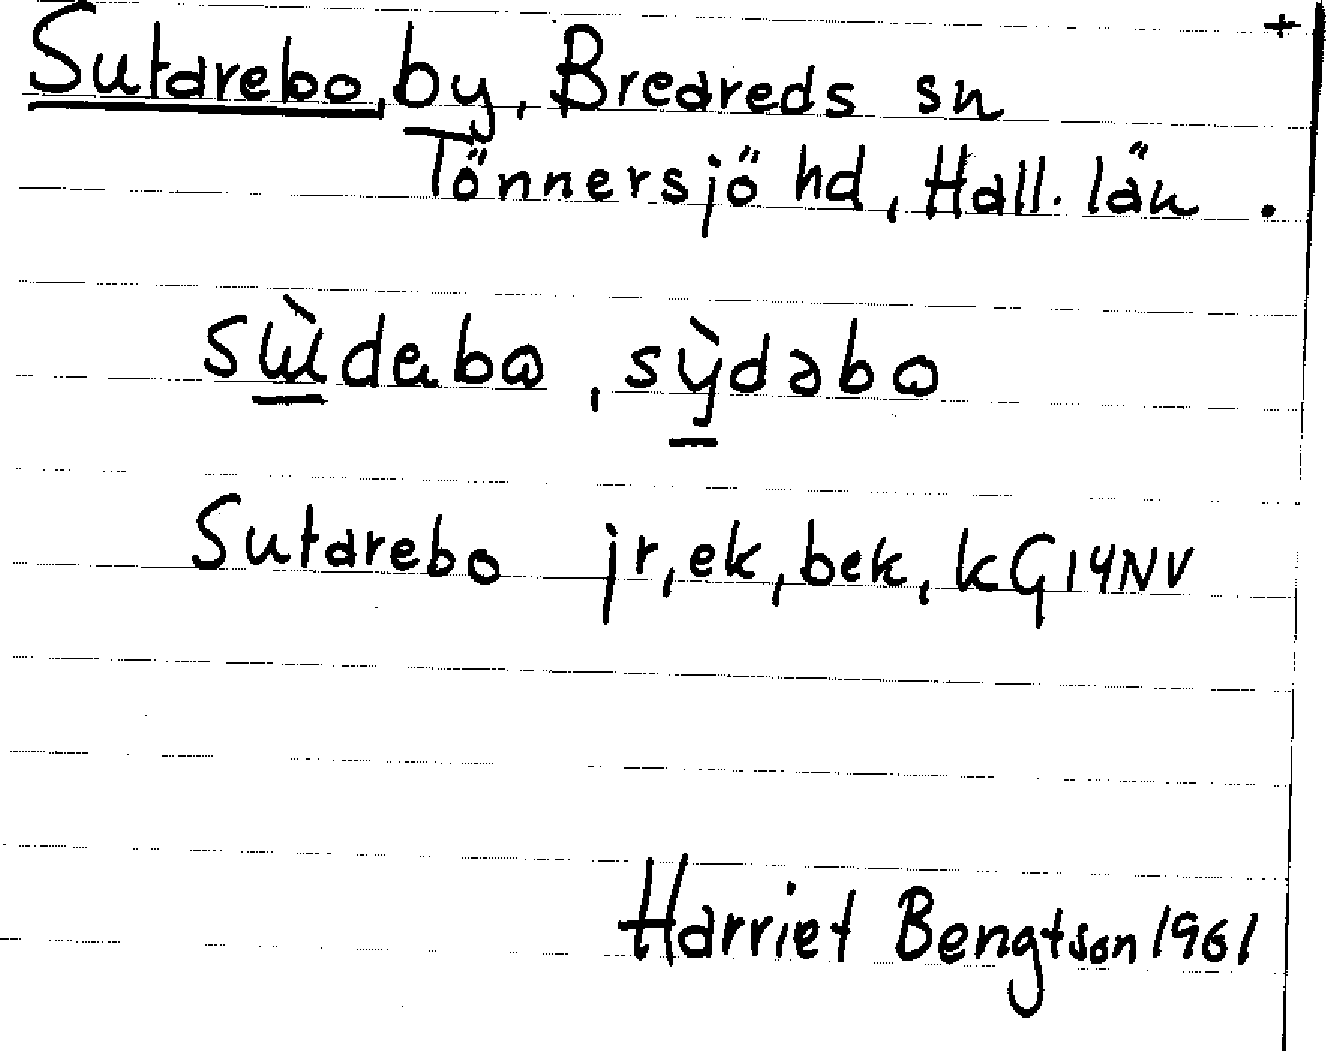 +
Sutarebo, by, Breareds sn
Tönnersjö hd, Hall. län.
sɯ̀dɐbɷ, sỳ̖dəbɷ
Sutarebo jr, ek, bek, kG14NV
Harriet Bengtson 1961